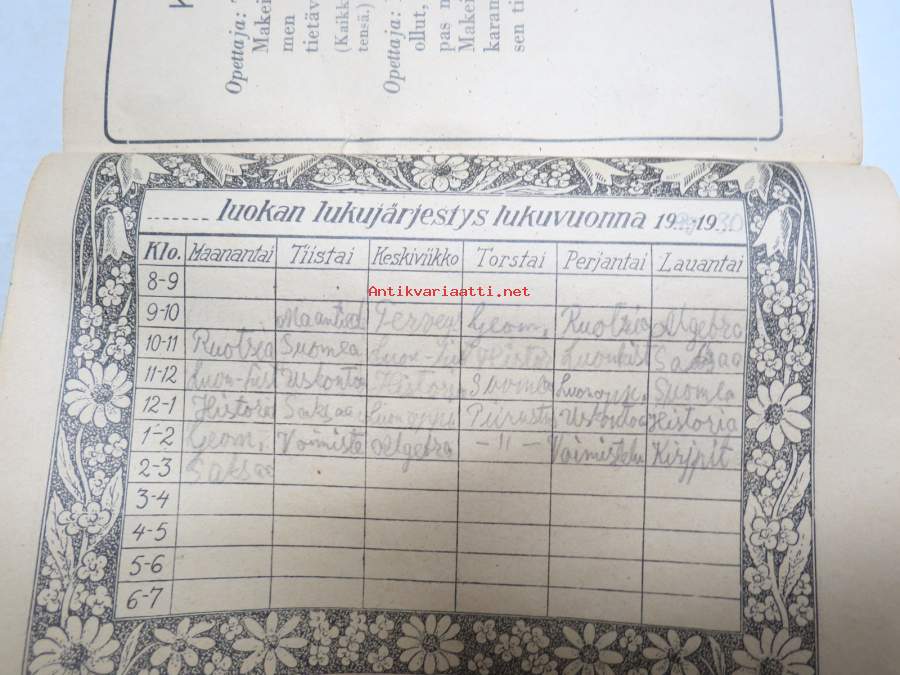 Opettaja:
Makei
men
tietäv
(Kaikk
tensä.)
Opettaja:
ollut,
pas n
Makei
karan
sen ti
........ luokan lukujärjestys lukuvuonna 19 -19 30
Klo. Maanantai Tiistai Keskiviikko Torstai Perjantai Lauantai
Antikvariaatti.net
8-9
9-10 Maantied Tervey Geom, Ruotsia Algebra
10-11 Ruotsia Suomea Luon-his Histor Luonhist Saksaa
11-12 Luon-hist Uskontoa Historia Suomea Luonopp. Suomea
12-1 Historia Saksaa Luonopp. Piirustu Uskontoa Historia
1-2 Geom, Voimiste Algebra -"- Voimistelu Kirjpit
2-3 Saksaa
3-4
4-5
5-6
6-7